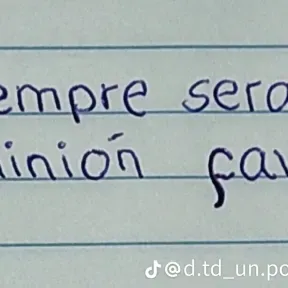 empre sera
inión fav
@d.td_un.po